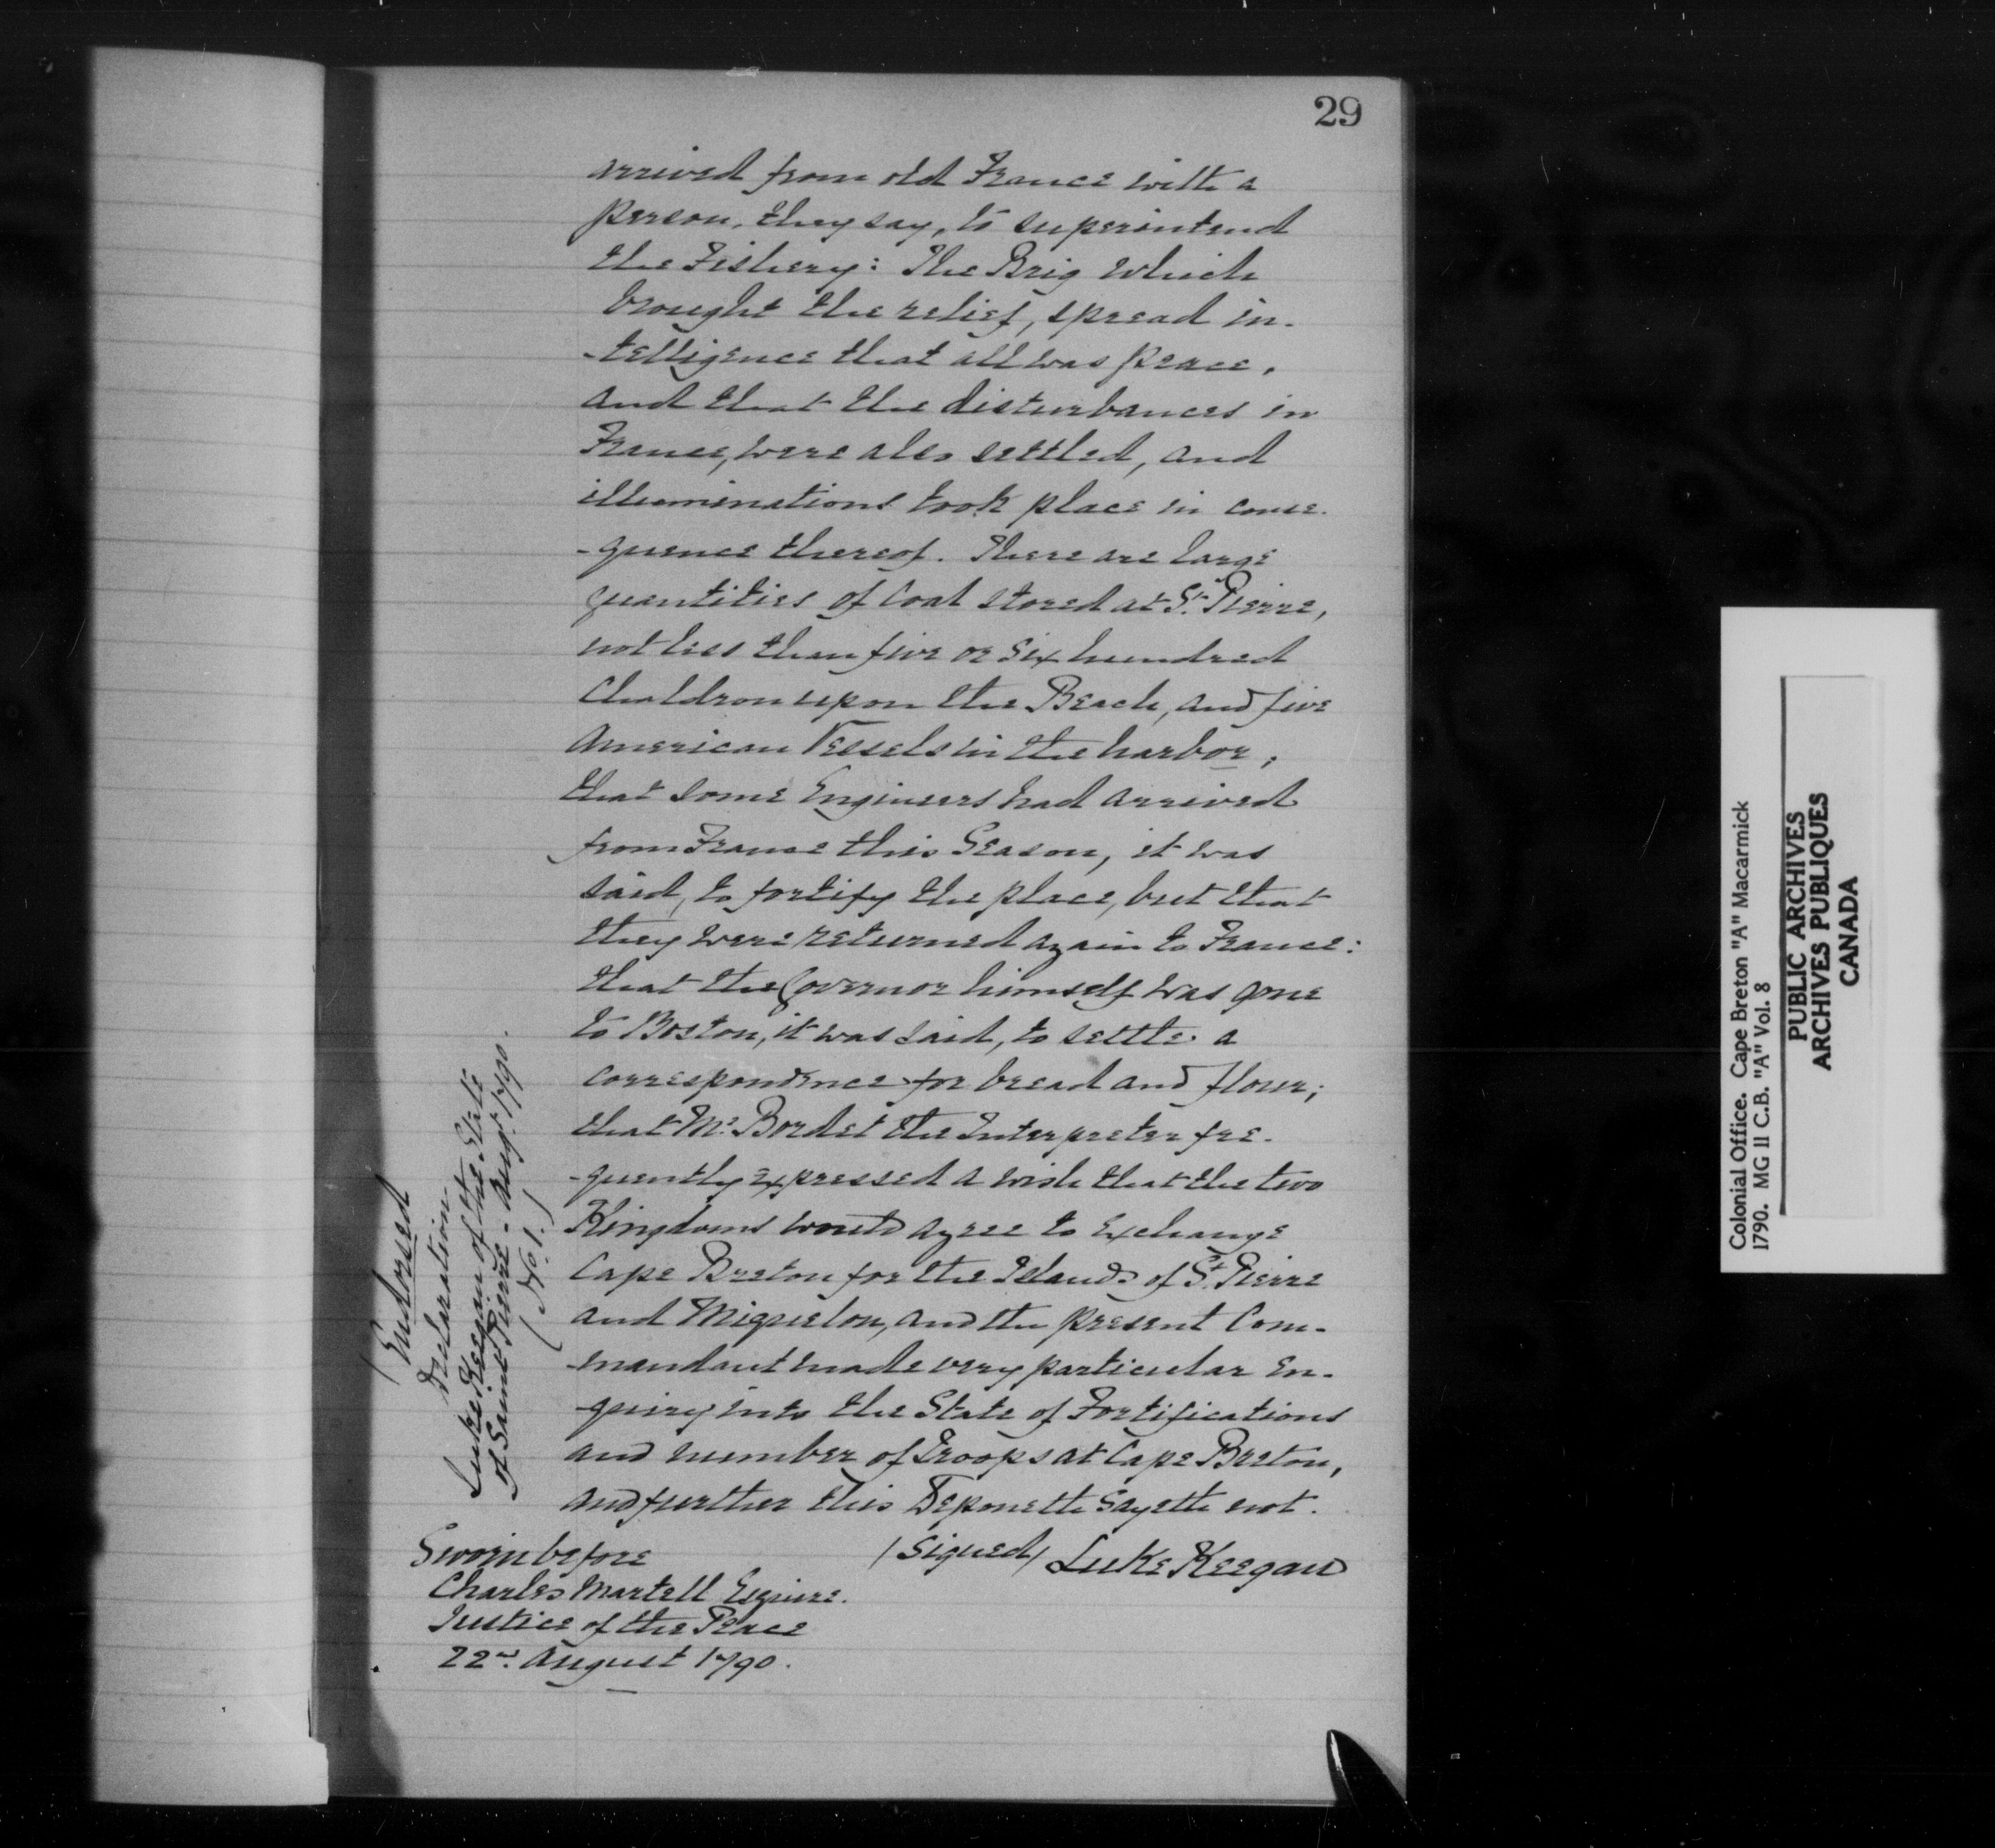 29
arrived from old France with a
person, they say, to superintend
the Fishery: The Brig which
brought the relief, spread in-
-telligence that all was peace,
and that the disturbances in
France, were also settled, and
illuminations took place in conse-
-quence thereof. There are large
quantities of Coal stored at St. Pierre,
not less than five or six hundred
Chaldron upon the Beach, and five
American Vessels in the harbor,
that some Engineers had arrived
from France this Season, it was
said, to fortify the place, but that
they were returned again to France:
that the Governor himself was gone
to Boston, it was said, to settle a
correspondence for bread and flour;
that Mr. Bordet the Interpreter fre-
-quently expressed a wish that the two
Kingdoms would agree to exchange
Cape Breton for the Islands of St. Pierre
and Miquelon, and the present Com-
-mandant made very particular en-
-quiry into the State of Fortifications
and number of Troops at Cape Breton,
and further this Deponeth Sayeth not.
(Signed) Luke Keegan
Sworn before
Charles Martell Esquire.
Justice of the Peace
22nd August 1790.
(Endorsed
Declaration
Luke Keegan of the State
of Saint Pierre - Augt. 1790.
(No. 1.)
Colonial Office. Cape Breton "A" Macarnick
1790. MG 11 C.B. "A" Vol. 8
PUBLIC ARCHIVES
ARCHIVES PUBLIQUES
CANADA